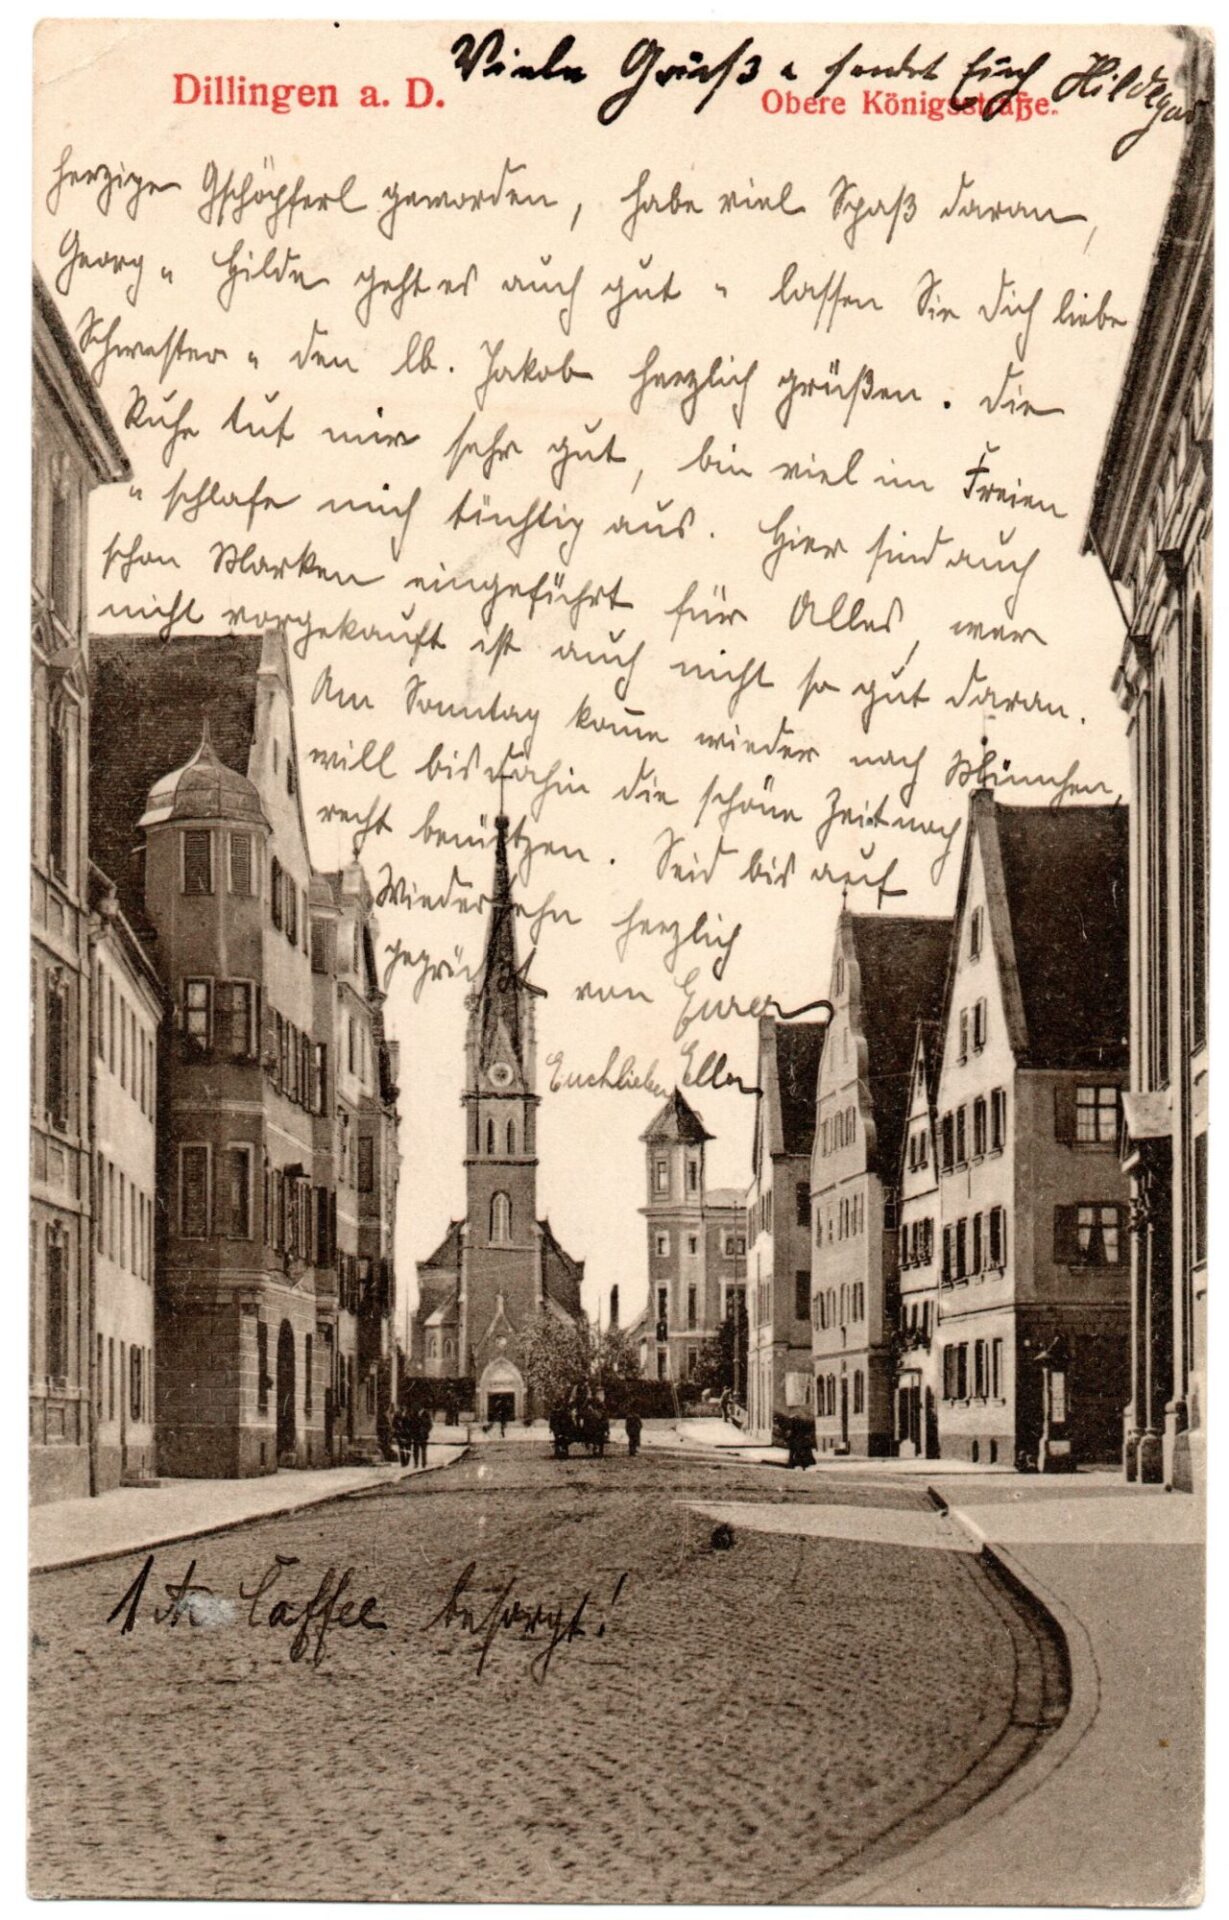 Viele Grüße sendet Euch Hildegard
Dillingen a. D.
Obere Königsstraße.
herzige Gschöpferl geworden, habe viel Spaß daran,
Georg u. Hilde geht es auch gut u. lassen Sie dich liebe
Schwester u. den lb. Jakob herzlich grüßen. Die
Ruhe tut mir sehr gut, bin viel im Freien
u. schlafe mich tüchtig aus. Hier sind auch
schon Marken eingeführt für Alles, wer
nicht vorgekauft ist auch nicht so gut daran.
Am Sonntag komme wieder nach München,
will bis dahin die schöne Zeit noch
recht benützen. Seid bis auf
Wiedersehn herzlich
gegrüßt von Eurer
Euchlieben Ella
1 Caffee besorgt!